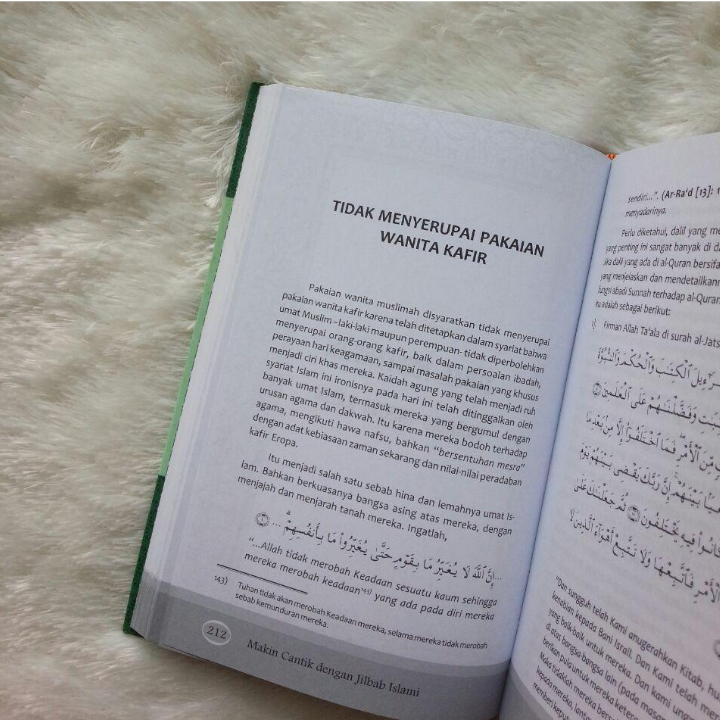 TIDAK MENYERUPAI PAKAIAN
WANITA KAFIR
Pakaian wanita muslimah disyaratkan tidak menyerupai
pakaian wanita kafir karena telah ditetapkan dalam syariat bahwa
umat Muslim –laki-laki maupun perempuan- tidak diperbolehkan
menyerupai orang-orang kafir, baik dalam persoalan ibadah,
perayaan hari keagamaan, sampai masalah pakaian yang khusus
menjadi ciri khas mereka. Kaidah agung yang telah menjadi ruh
syariat Islam ini ironisnya pada hari ini telah ditinggalkan oleh
banyak umat Islam, termasuk mereka yang bergumul dengan
urusan agama dan dakwah. Itu karena mereka bodoh terhadap
agama, mengikuti hawa nafsu, bahkan "bersentuhan mesra"
dengan adat kebiasaan zaman sekarang dan nilai-nilai peradaban
kafir Eropa.
Itu menjadi salah satu sebab hina dan lemahnya umat Is-
lam. Bahkan berkuasanya bangsa asing atas mereka, dengan
menjajah dan menjarah tanah mereka. Ingatlah,
...إِنَّ ٱللَّهَ لَا يُغَيِّرُ مَا بِقَوْمٍ حَتَّىٰ يُغَيِّرُوا۟ مَا بِأَنفُسِهِمْ ...
"...Allah tidak merobah Keadaan sesuatu kaum sehingga
mereka merobah keadaan¹⁴³⁾ yang ada pada diri mereka
143) Tuhan tidak akan merobah Keadaan mereka, selama mereka tidak merobah
sebab kemunduran mereka.
212 Makin Cantik dengan Jilbab Islami
sendiri...". (Ar-Ra'd [13]:
Perlu diketahui, dalil yang
yang penting ini sangat banyak di
jika dalil yang ada di al-Quran bersifa
yang menjelaskan dan mendetailkan
fungsi abadi Sunnah terhadap al-Quran
itu adalah sebagai berikut:
Firman Allah Ta'ala di surah al-Jats
ٱلْكِتَٰبَ وَٱلْحُكْمَ وَٱلنُّبُوَّةَ
وَفَضَّلْنَٰهُمْ عَلَى ٱلْعَٰلَمِينَ
مِّنَ ٱلْأَمْرِ فَمَا ٱخْتَلَفُوٓا۟ إِلَّا مِنۢ بَعْدِ مَا
بَيْنَهُمْ إِنَّ رَبَّكَ يَقْضِى بَيْنَهُمْ يَوْمَ
كَانُوا۟ فِيهِ يَخْتَلِفُونَ ثُمَّ جَعَلْنَٰكَ عَلَىٰ
ٱلْأَمْرِ فَٱتَّبِعْهَا وَلَا تَتَّبِعْ أَهْوَآءَ ٱلَّذِينَ لَا
"Dan sungguh telah Kami anugerahkan Kitab,
kenabian kepada Bani Israil. Dan Kami telah
yang baik-baik untuk mereka. Dan kami
di atas bangsa lain (pada
berikan pula untuk mereka